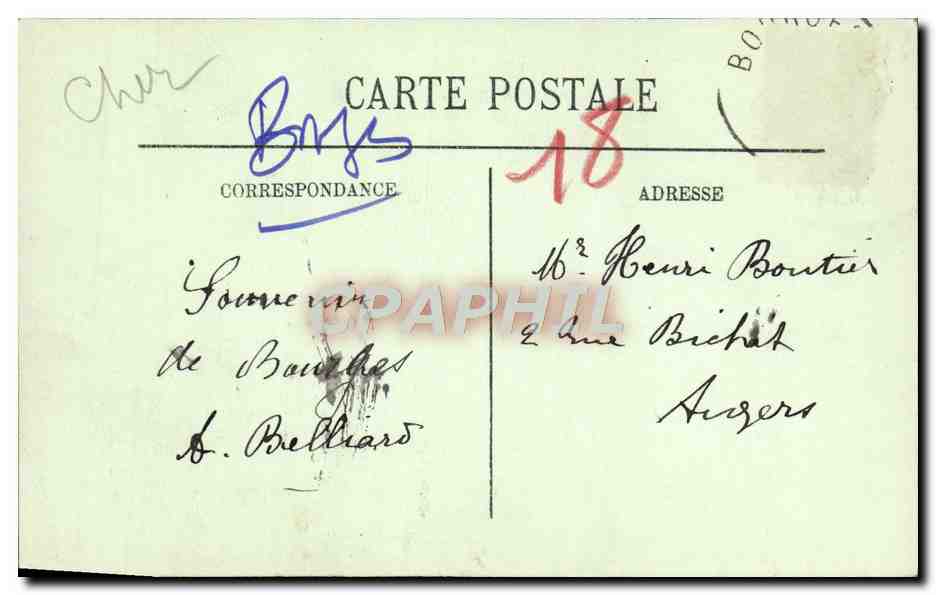 Cher
CARTE POSTALE
18
CORRESPONDANCE
ADRESSE
Souvenir
de Bourges
A. Belliard
Mr. Henri Boutier
2 rue Bichat
Angers
CPAPHIL